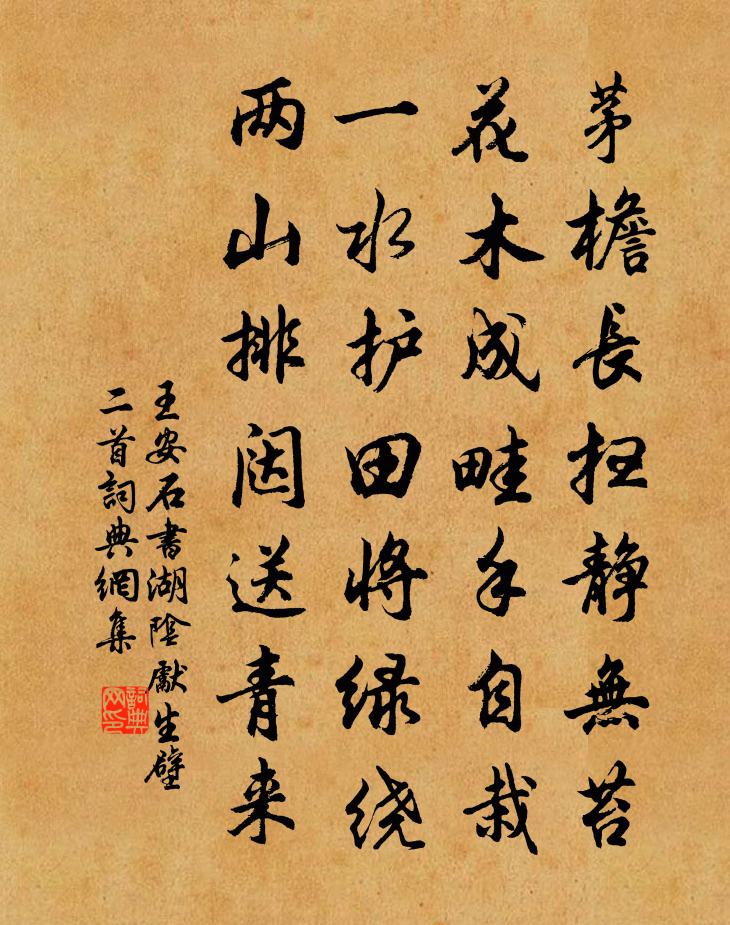 茅檐長扫静無苔
花木成畦手自栽
一水护田将绿绕
两山排闼送青来
王安石書湖陰獻生壁
二首詞典網集
詞典网印